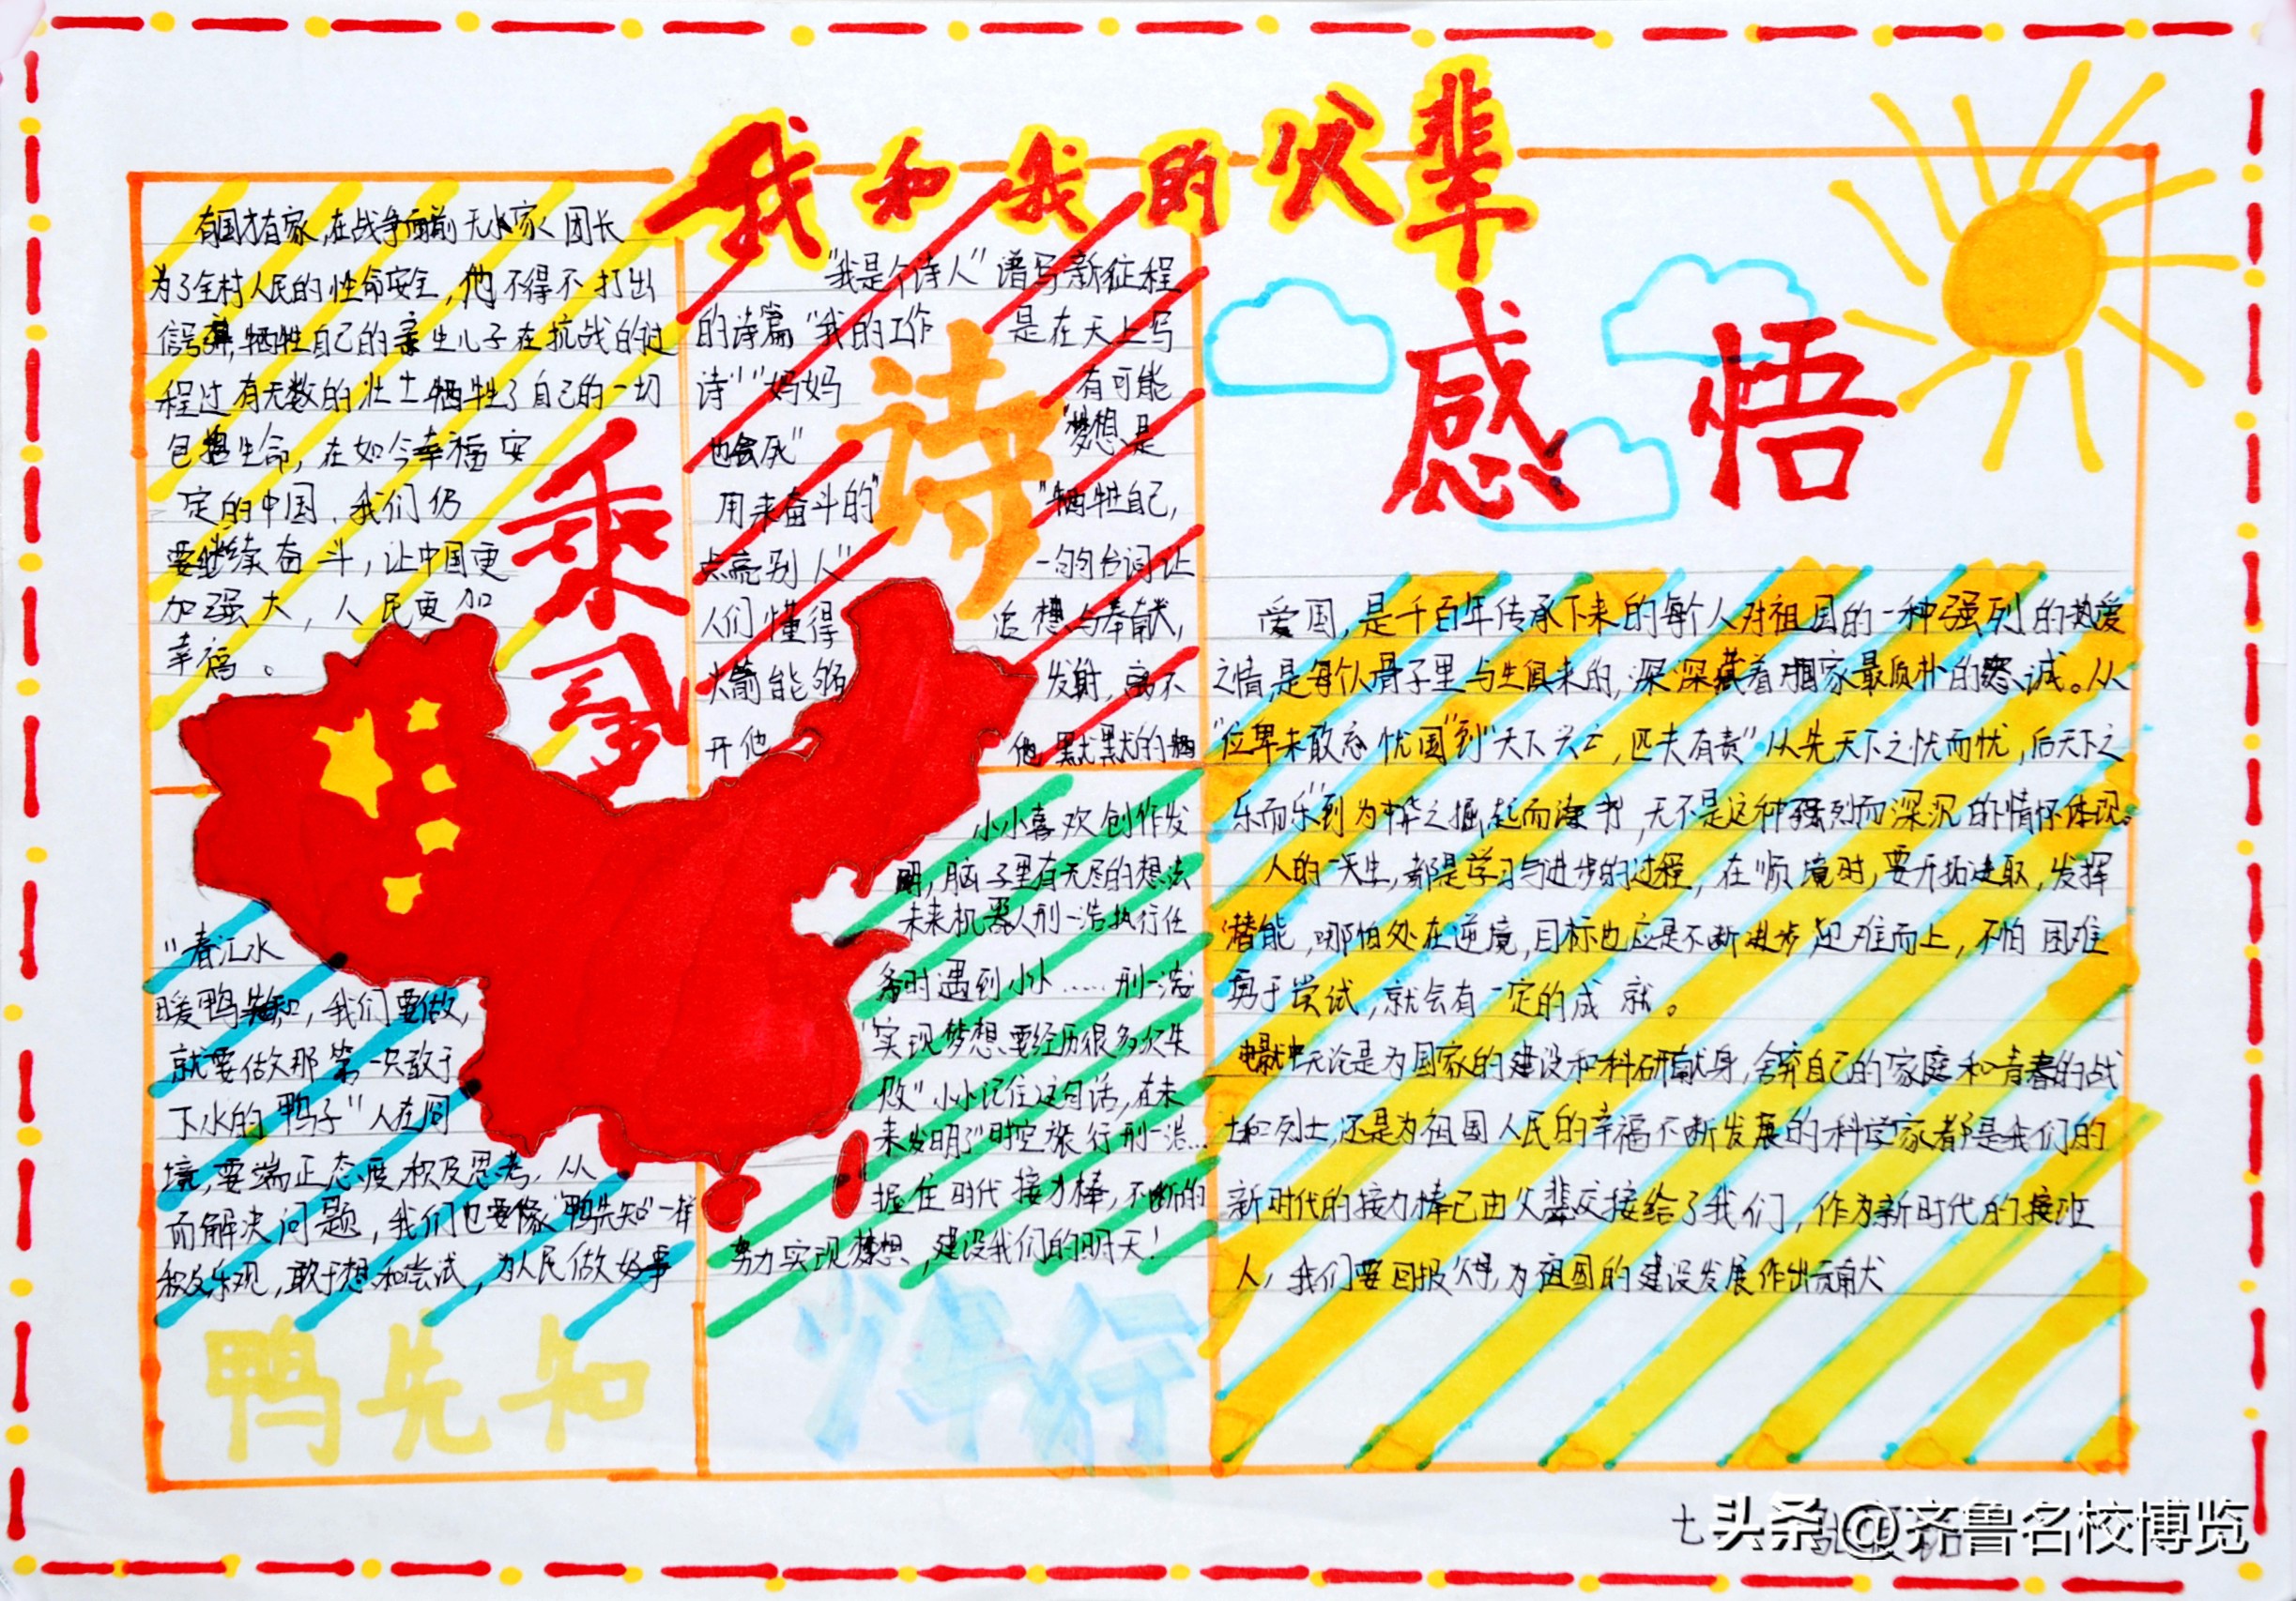 我和我的父辈
感悟
有国才有家,在战争面前无小家,团长
为了全村人民的性命安全,他不得不打出
信号弹,牺牲自己的亲生儿子在抗战的过
程过有无数的壮士牺牲了自己的一切
包括生命,在如今幸福安
定的中国、我们仍
要继续奋斗,让中国更
加强大,人民更加
幸福。
乘风
"我是个诗人"谱写新征程
的诗篇"我的工作是在天上写
诗""妈妈有可能
也会死""梦想是
用来奋斗的""牺牲自己,
点亮别人"一句句台词让
人们懂得追梦与奉献,
火箭能够发射,离不
开他他默默的牺
诗
"春江水
暖鸭先知,我们要做,
就要做那第一只敢于
下水的鸭子"人在困
境,要端正态度,积极思考,从
而解决问题,我们也要像"鸭先知"一样
积极乐观,敢于想和尝试,为人民做好事
鸭先知
小小喜欢创作发
明,脑子里有无尽的想法
未来机器人邢一浩执行任
务时遇到小小……邢一浩
"实现梦想要经历很多次失
败"小小记住这句话,在未
来发明了"时空旅行邢一浩…
握住时代接力棒,不断的
努力实现梦想,建设我们的明天!
少年行
爱国,是千百年传承下来的每个人对祖国的一种强烈的热爱
之情,是每个人骨子里与生俱来的,深深藏着对国家最质朴的忠诚。从
"位卑未敢忘忧国"到"天下兴亡,匹夫有责"从先天下之忧而忧,后天下之
乐而乐"到为中华之掘起而读书,无不是这种强烈而深沉的情怀体现。
人的一生,都是学习与进步的过程,在顺境时,要开拓进取,发挥
潜能,哪怕处在逆境,目标也应是不断进步,迎难而上,不怕困难
勇于尝试,就会有一定的成就。
无论是为国家的建设和科研献身,舍弃自己的家庭和青春的战
士和烈士,还是为祖国人民的幸福不断发展的科学家都是我们的
新时代的接力棒已由父辈交接给了我们,作为新时代的接班
人,我们要回报父母,为祖国的建设发展作出贡献
七
头条@齐鲁名校博览